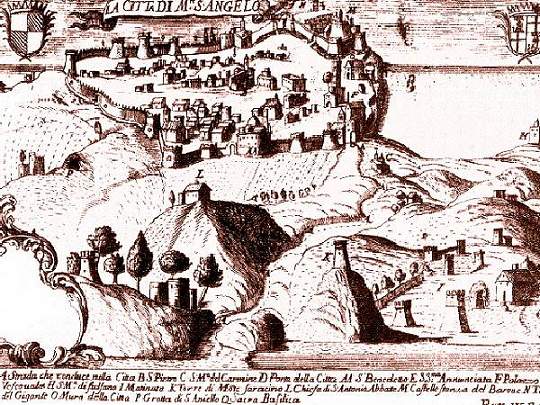 LA CITTA DI M.te S. ANGELO
L
A Strada che conduce nella Citta B S. Pietro C S. M.a del Carmine D Porta della Citta AA S. Benedetto E SS.ma Annunciata F Palazzo
Vescovale H S. M.a di I Mattinata K Torre di Mote saracino L Chiesa di S. Antonio Abbate M Castello N T
del Gigante O Mura della Citta P Grotta di S. Aniello Q Sacra Basilica